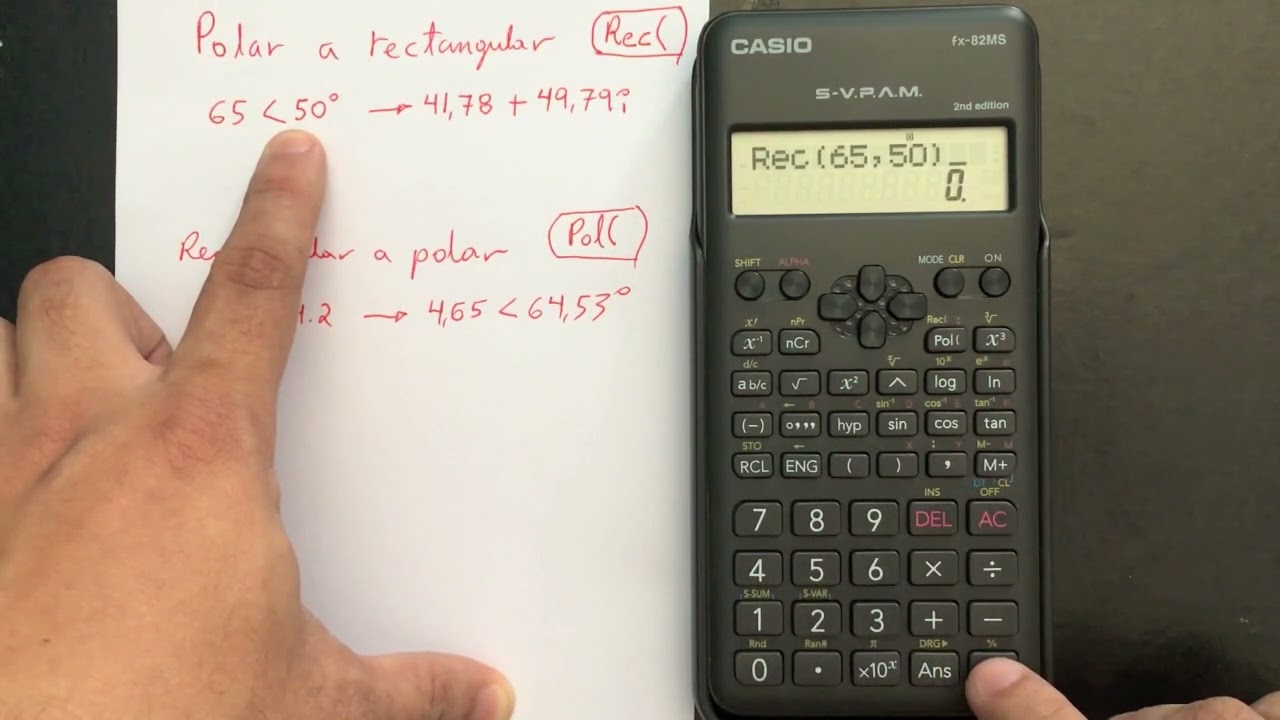 Polar a rectangular Rec(
65 < 50° → 41,78 + 49,79i
a polar Pol(
→ 4,65 < 64,53°
CASIO fx-82MS
S-V.P.A.M.
2nd edition
Rec(65,50)_
0.
SHIFT ALPHA MODE CLR ON
x! nPr Rec( : ³√
x⁻¹ nCr Pol( x³
d/c ˣ√ 10ˣ eˣ e
a b/c √ x² ^ log ln
A ← B C sin⁻¹ D cos⁻¹ E tan⁻¹ F
(−) °,,, hyp sin cos tan
STO ← X ; Y M− M
RCL ENG ( ) , M+
INS OFF
7 8 9 DEL AC
4 5 6 × ÷
S-SUM S-VAR
1 2 3 + −
Rnd Ran# π DRG► %
0 · ×10ˣ Ans